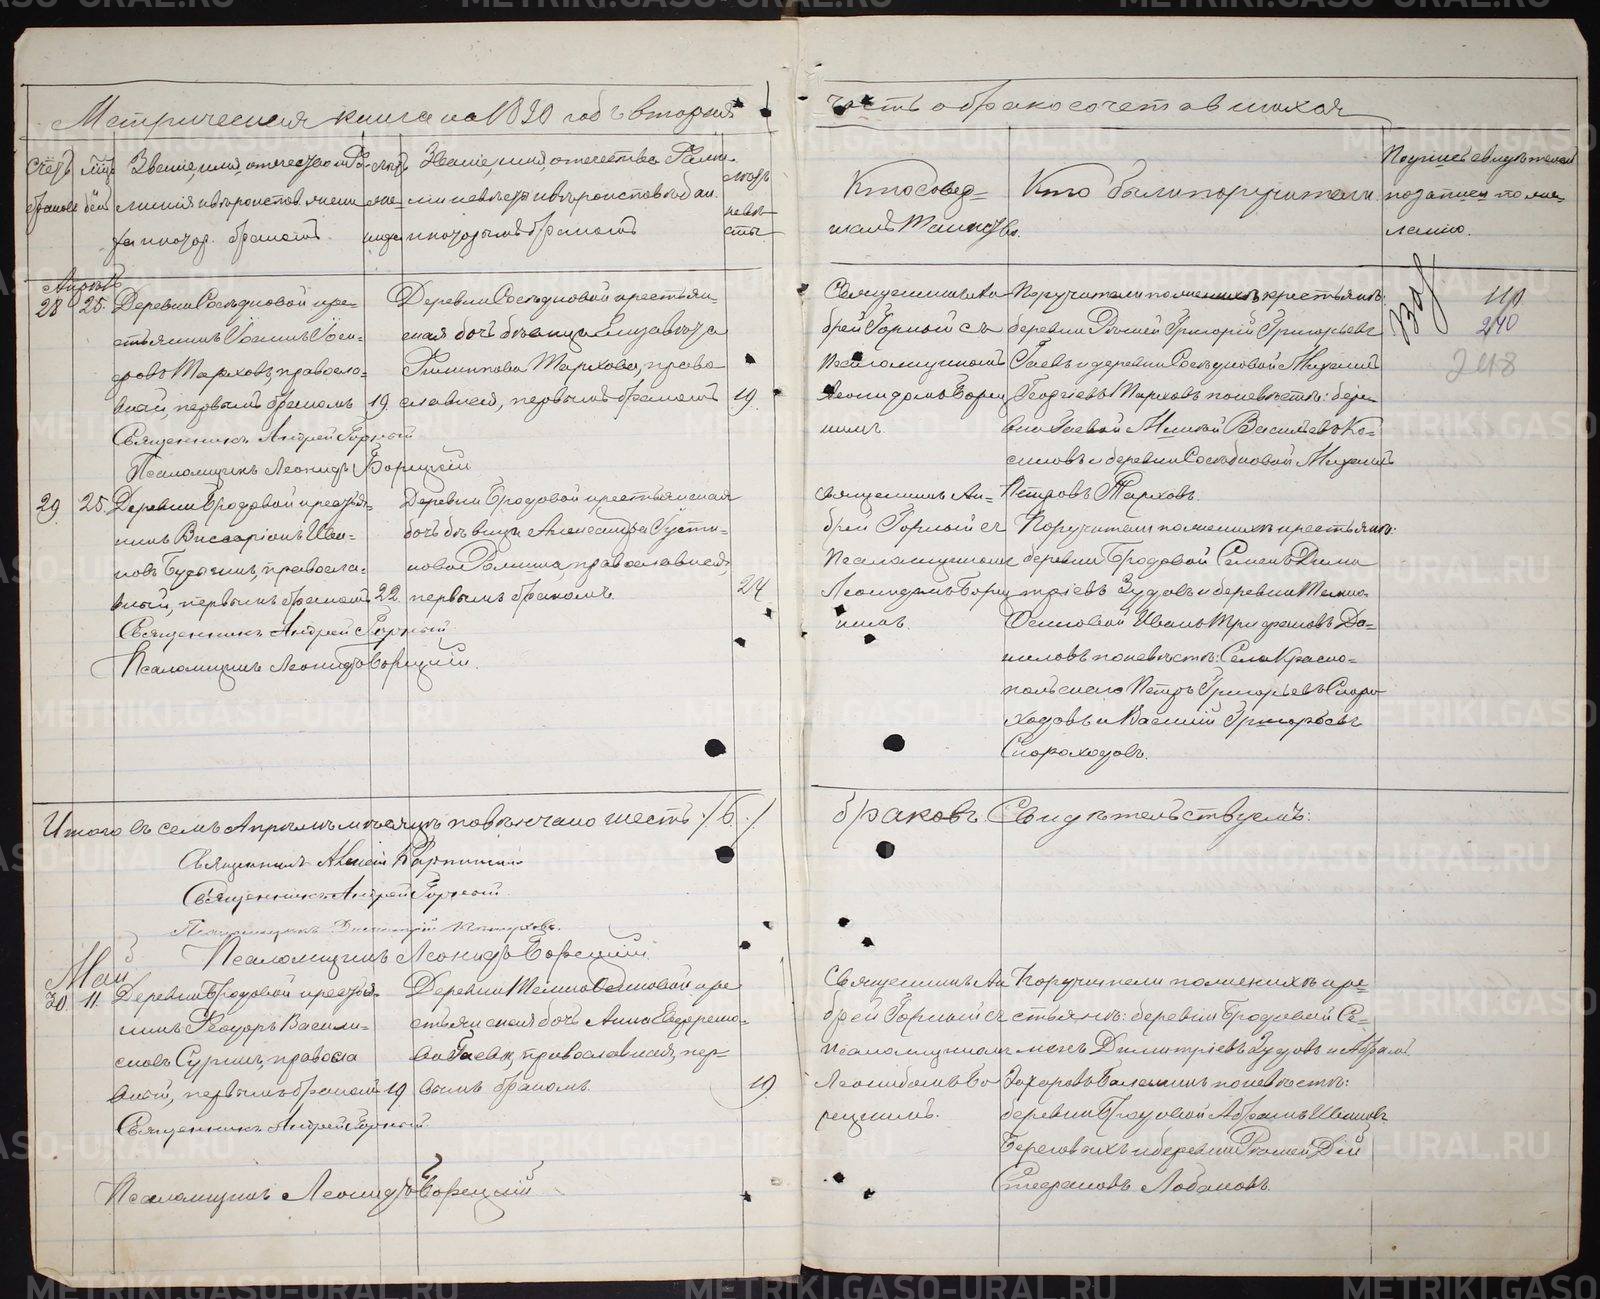 Метрическая книга на 18 0 годъ вторая
часть о бракосочетавшихся
Счетъ браковъ
Мѣц. день
Званіе, имя, отчество, фа-
милія и вѣроисповѣ жени-
ха и котор. бракомъ
Лѣта жениха
Званіе, имя, отчество, Фами-
лія невѣсты и вѣроисповѣдан.
и которымъ бракомъ
Лѣта невѣсты
Кто совер-
шалъ Таинство.
Кто были поручители
Подпись свидѣтелей
записи по же-
ланію.
Апрѣль
28 25. Деревни Сосѣдковой кре-
стьянинъ Іосифъ
Тарховъ, правосла-
вный, первымъ бракомъ 19
Священникъ Андрей Горный
Псаломщикъ Леонидъ Борецкій
Деревни Сосѣдковой крестьян-
ская дочь дѣвица Елизавета
Филиппова Тархова, право-
славная, первымъ бракомъ 19.
Священникъ Ан-
дрей Горный съ
Псаломщикомъ
Леонидомъ Борец
кимъ.
Поручители по женихѣ крестьяне:
деревни Григорій Григорьевъ
Гаевъ и деревни Сосѣдковой Михаилъ
Георгіевъ Тарховъ по невѣстѣ: дере-
вни Гаевой Васильевъ Ко-
силовъ и деревни Сосѣдковой Михаилъ
Петровъ Тарховъ.
110
240
248
29. 25. Деревни Бродовой крестья-
нинъ Виссаріонъ Ива-
новъ правосла-
вный, первымъ бракомъ 22
Священникъ Андрей Горный
Псаломщикъ Леонидъ Борецкій.
Деревни Бродовой крестьянская
дочь дѣвица Александра Густи-
нова православная,
первымъ бракомъ. 24
Священникъ Ан-
дрей Горный съ
Псаломщикомъ
Леонидомъ Борец
кимъ.
Поручители по женихѣ крестьяне:
деревни Бродовой Семенъ Дими
тріевъ Зудовъ и деревни Темно-
Осиновой Иванъ Трифановъ Да-
ниловъ по невѣстѣ: Села Красно-
польскаго Петръ Григорьевъ Скоро-
ходовъ и Василій Григорьевъ
Скороходовъ.
Итого въ семъ Апрѣлѣ мѣсяцѣ повѣнчано шесть /6./
браковъ. Свидѣтельствуемъ:
Священникъ Алексій
Священникъ Андрей Горный
Псаломщикъ Димитрій
Псаломщикъ Леонидъ Борецкій
Май
30 11. Деревни Бродовой крестья-
нинъ Ѳеодоръ Васили-
евъ Суринъ, правосла
вный, первымъ бракомъ 19
Священникъ Андрей Горный
Псаломщикъ Леонидъ Борецкій
Деревни Темно Осиновой кре-
стьянская дочь Анна Евфремо-
ва Гаева, православная, пер-
вымъ бракомъ. 19.
Священникъ Ан
дрей Горный съ
Псаломщикомъ
Леонидомъ Бо
рецкимъ.
Поручители по женихѣ кре-
стьяне: деревни Бродовой Се-
менъ Димитріевъ Зудовъ и Абрамъ
Захаровъ по невѣстѣ:
деревни Бродовой Абрамъ Ивановъ
Береговыхъ и деревни Дій
Стефановъ Лобановъ.
METRIKI.GASO-URAL.RU